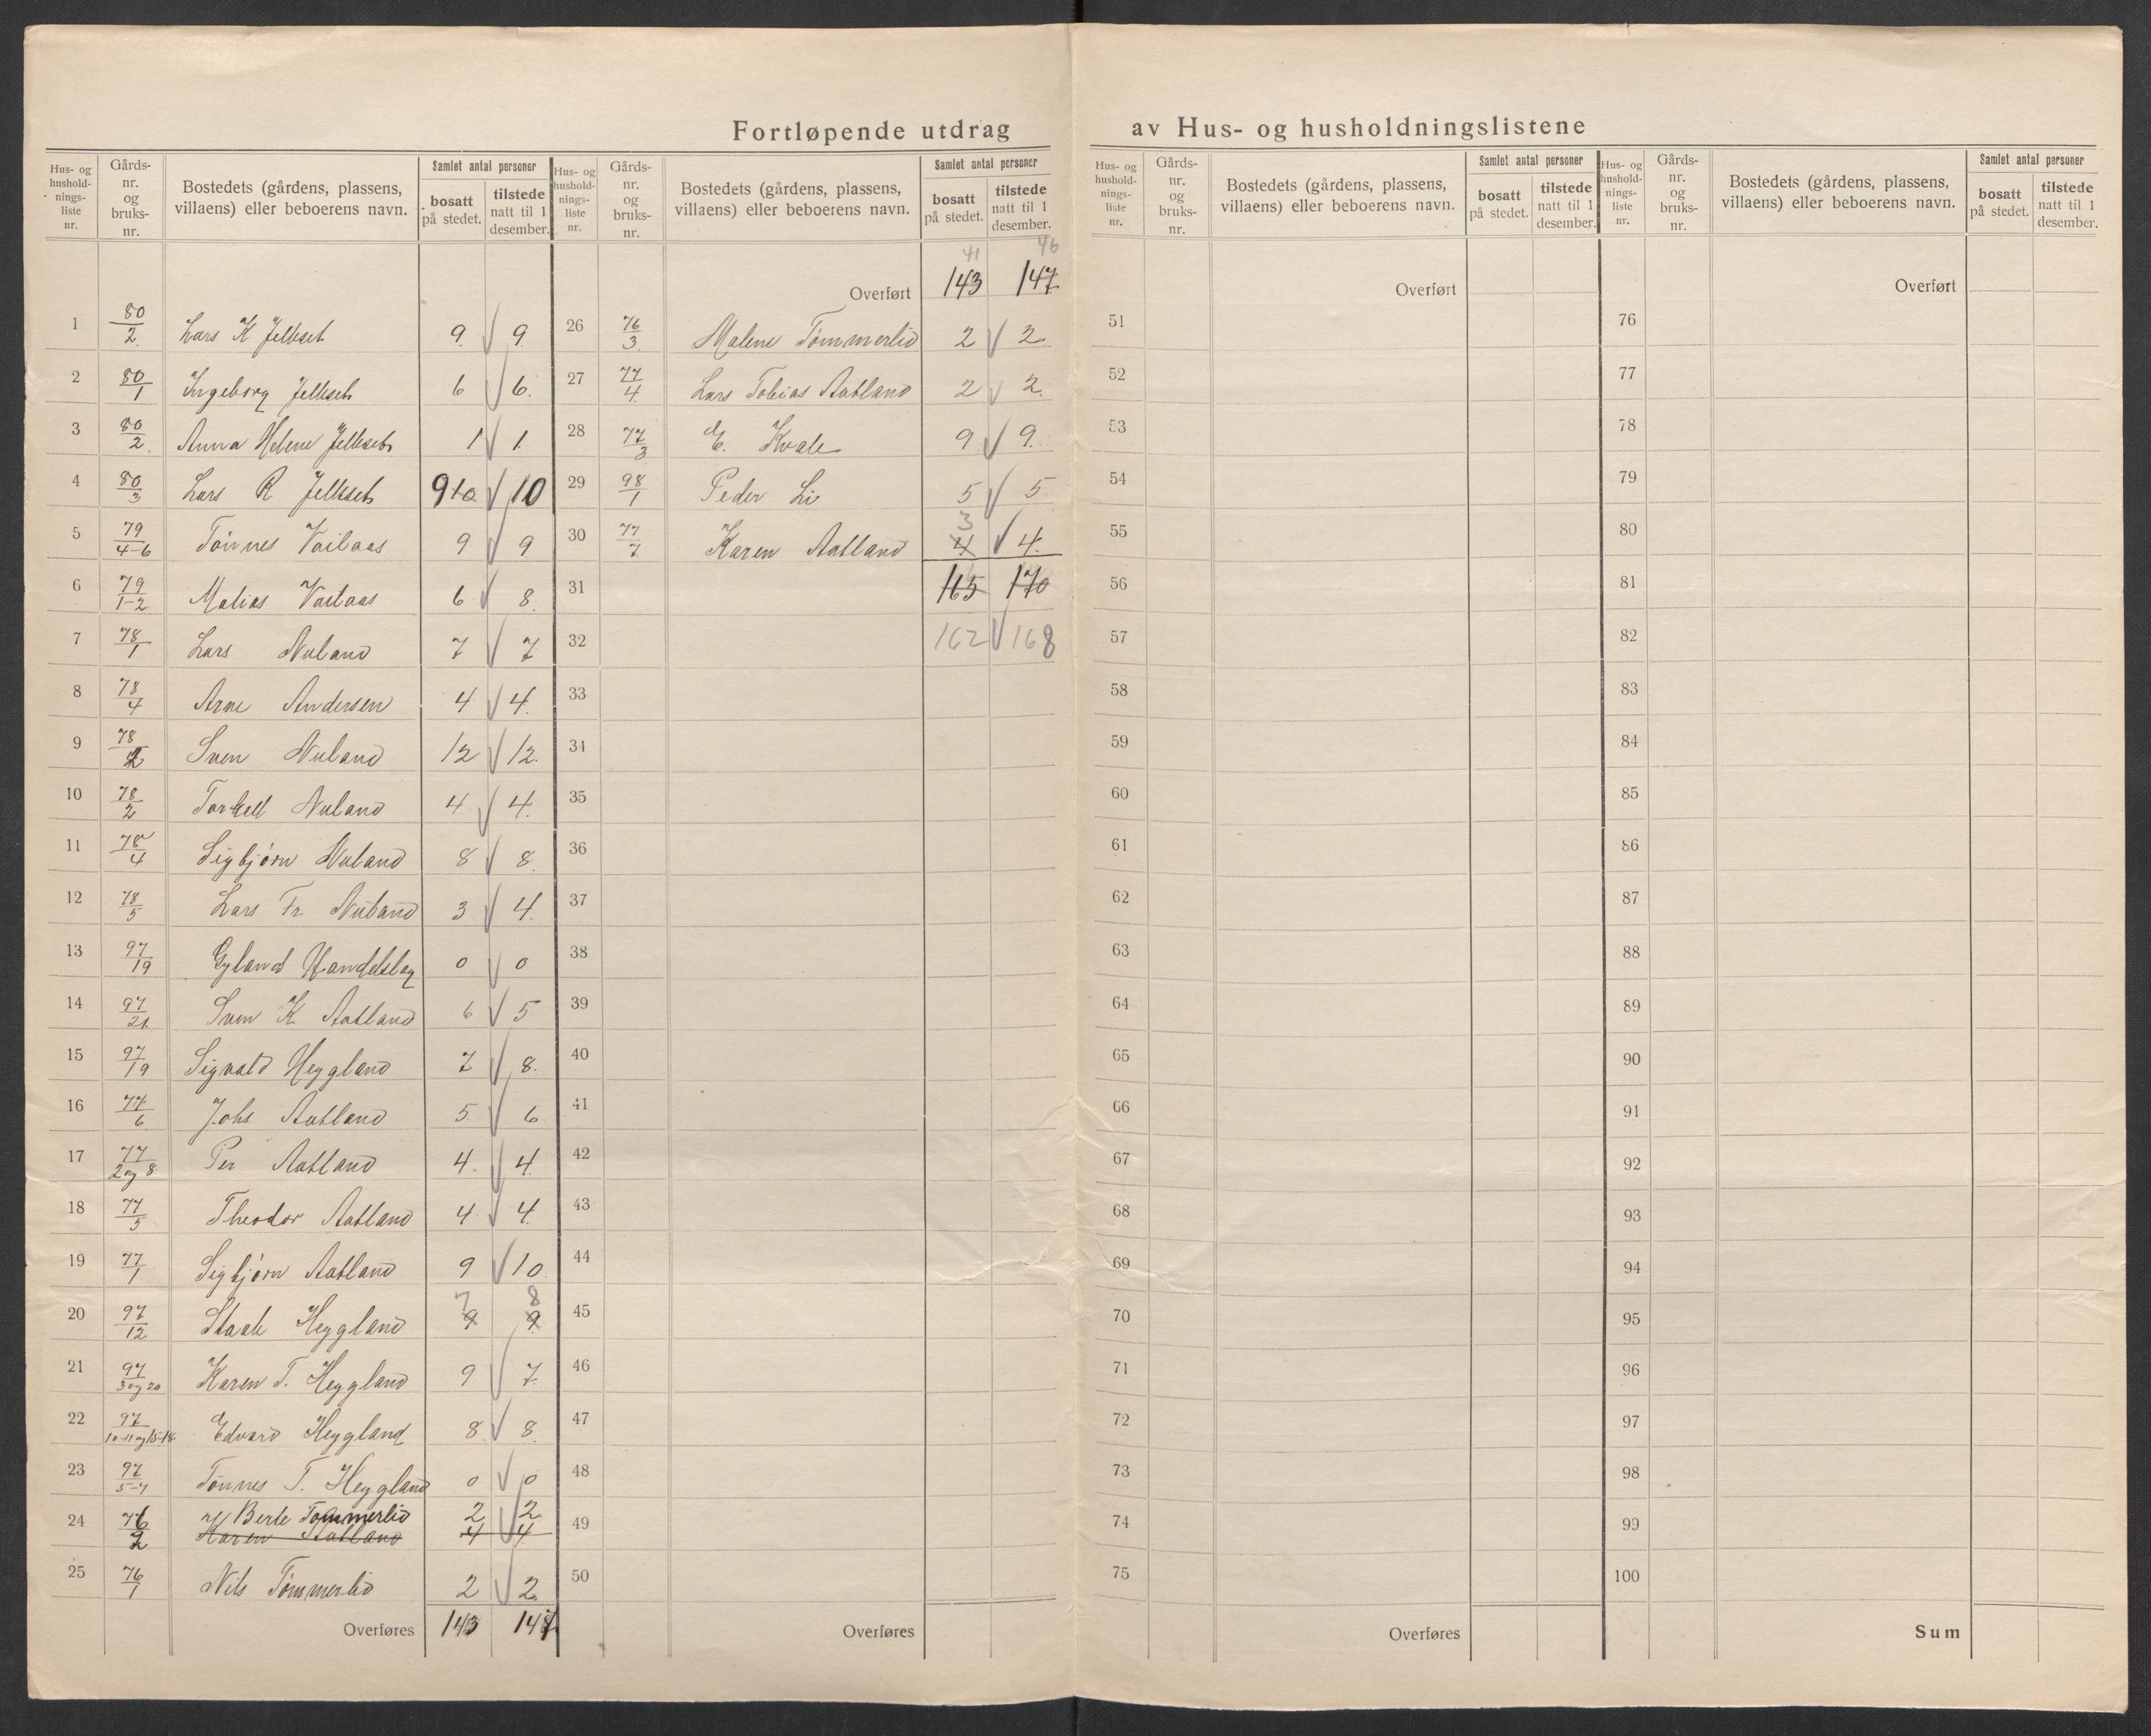 Fortløpende utdrag av Hus- og husholdningslistene
Hus- og husholdnings-liste nr. | Gårds-nr. og bruks-nr. | Bostedets (gårdens, plassens, villaens) eller beboerens navn. | Samlet antal personer | bosatt på stedet. | tilstede natt til 1 desember.
1 80/2 Lars K Jelleset 9 9
2 80/1 Ingeborg Jelleset 6 6
3 80/2 Anna Helene Jelleset 1 1
4 80/3 Lars R Jelleset 9 10 10
5 79/4-6 Tønnes Vailaas 9 9
6 79/1-2 Matias Vailaas 6 8
7 78/1 Lars Nuland 7 7
8 78/4 Arne Andersen 4 4
9 78/2 Sven Nuland 12 12
10 78/2 Torkell Nuland 4 4
11 78/4 Sigbjørn Nuland 8 8
12 78/5 Lars Fr. Nuland 3 4
13 97/19 Gyland Handelslag 0 0
14 97/21 Sven K Aatland 6 5
15 97/19 Sigvald Heggland 7 8
16 77/6 Johs Aatland 5 6
17 77/2 og 8 Per Aatland 4 4
18 77/5 Theodor Aatland 4 4
19 77/1 Sigbjørn Aatland 9 10
7 8
20 97/12 Heggland 9 9
21 97/3 og 20 Karen T. Heggland 9 7
22 97/10-11 og 15-18 Edvard Heggland 8 8
23 97/5-7 Tønnes T. Heggland 0 0
24 76/2 Berte Tømmerlid 2 2
Karen Aatland 4 4
25 76/1 Nils Tømmerlid 2 2
Overføres 143 147
Hus- og husholdnings-liste nr. | Gårds-nr. og bruks-nr. | Bostedets (gårdens, plassens, villaens) eller beboerens navn. | Samlet antal personer | bosatt på stedet. | tilstede natt til 1 desember.
41 46
Overført 143 147
26 76/3 Malene Tømmerlid 2 2
27 77/4 Lars Tobias Aatland 2 2
28 77/3 E. Kvale 9 9
29 98/1 Peder Li 5 5
3
30 77/7 Karen Aatland 4 4
31 165 170
32 162 168
33
34
35
36
37
38
39
40
41
42
43
44
45
46
47
48
49
50
Overføres
Hus- og husholdnings-liste nr. | Gårds-nr. og bruks-nr. | Bostedets (gårdens, plassens, villaens) eller beboerens navn. | Samlet antal personer | bosatt på stedet. | tilstede natt til 1 desember.
Overført
51
52
53
54
55
56
57
58
59
60
61
62
63
64
65
66
67
68
69
70
71
72
73
74
75
Overføres
Hus- og husholdnings-liste nr. | Gårds-nr. og bruks-nr. | Bostedets (gårdens, plassens, villaens) eller beboerens navn. | Samlet antal personer | bosatt på stedet. | tilstede natt til 1 desember.
Overført
76
77
78
79
80
81
82
83
84
85
86
87
88
89
90
91
92
93
94
95
96
97
98
99
100
Sum